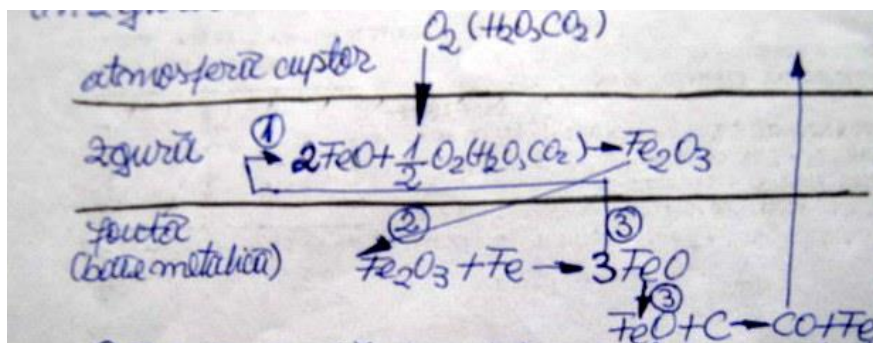 O₂ (H₂O, CO₂)
atmosferă cuptor
① 
zgură 2FeO + 1/2 O₂ (H₂O, CO₂) → Fe₂O₃
fontă ② ③
(baie metalică) Fe₂O₃ + Fe → 3FeO
③
FeO + C → CO + Fe